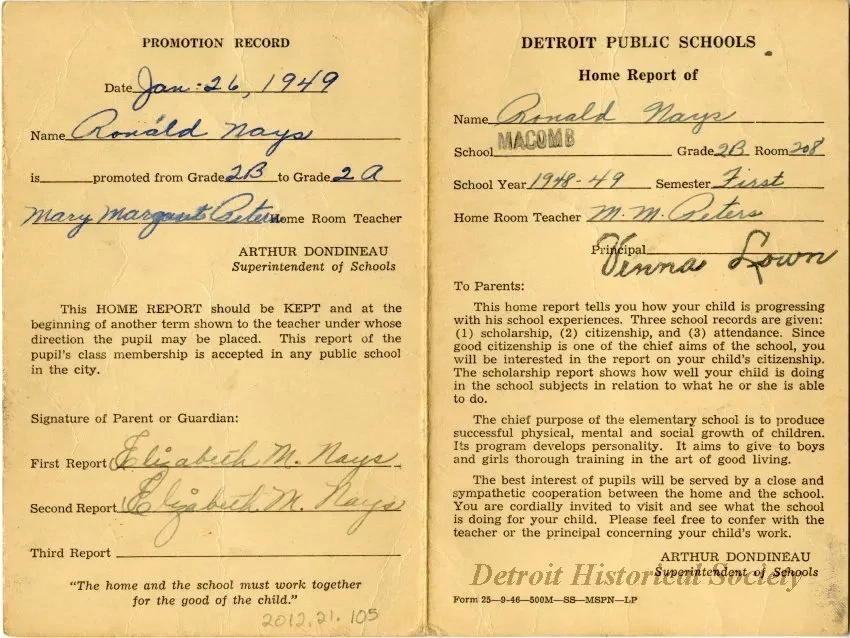 PROMOTION RECORD
Date Jan. 26, 1949
Name Ronald Nays
is promoted from Grade 2B to Grade 2A
Mary Margaret Peters Home Room Teacher
ARTHUR DONDINEAU
Superintendent of Schools
This HOME REPORT should be KEPT and at the
beginning of another term shown to the teacher under whose
direction the pupil may be placed. This report of the
pupil's class membership is accepted in any public school
in the city.
Signature of Parent or Guardian:
First Report Elizabeth M. Nays
Second Report Elizabeth M. Nays
Third Report
"The home and the school must work together
for the good of the child."
2012.21.105
DETROIT PUBLIC SCHOOLS
Home Report of
Name Ronald Nays
School MACOMB Grade 2B Room 208
School Year 1948-49 Semester First
Home Room Teacher M. M. Peters
Principal Venna Lown
To Parents:
This home report tells you how your child is progressing
with his school experiences. Three school records are given:
(1) scholarship, (2) citizenship, and (3) attendance. Since
good citizenship is one of the chief aims of the school, you
will be interested in the report on your child's citizenship.
The scholarship report shows how well your child is doing
in the school subjects in relation to what he or she is able
to do.
The chief purpose of the elementary school is to produce
successful physical, mental and social growth of children.
Its program develops personality. It aims to give to boys
and girls thorough training in the art of good living.
The best interest of pupils will be served by a close and
sympathetic cooperation between the home and the school.
You are cordially invited to visit and see what the school
is doing for your child. Please feel free to confer with the
teacher or the principal concerning your child's work.
ARTHUR DONDINEAU
Superintendent of Schools
Detroit Historical Society
Form 25—9-46—500M—SS—MSPN—LP